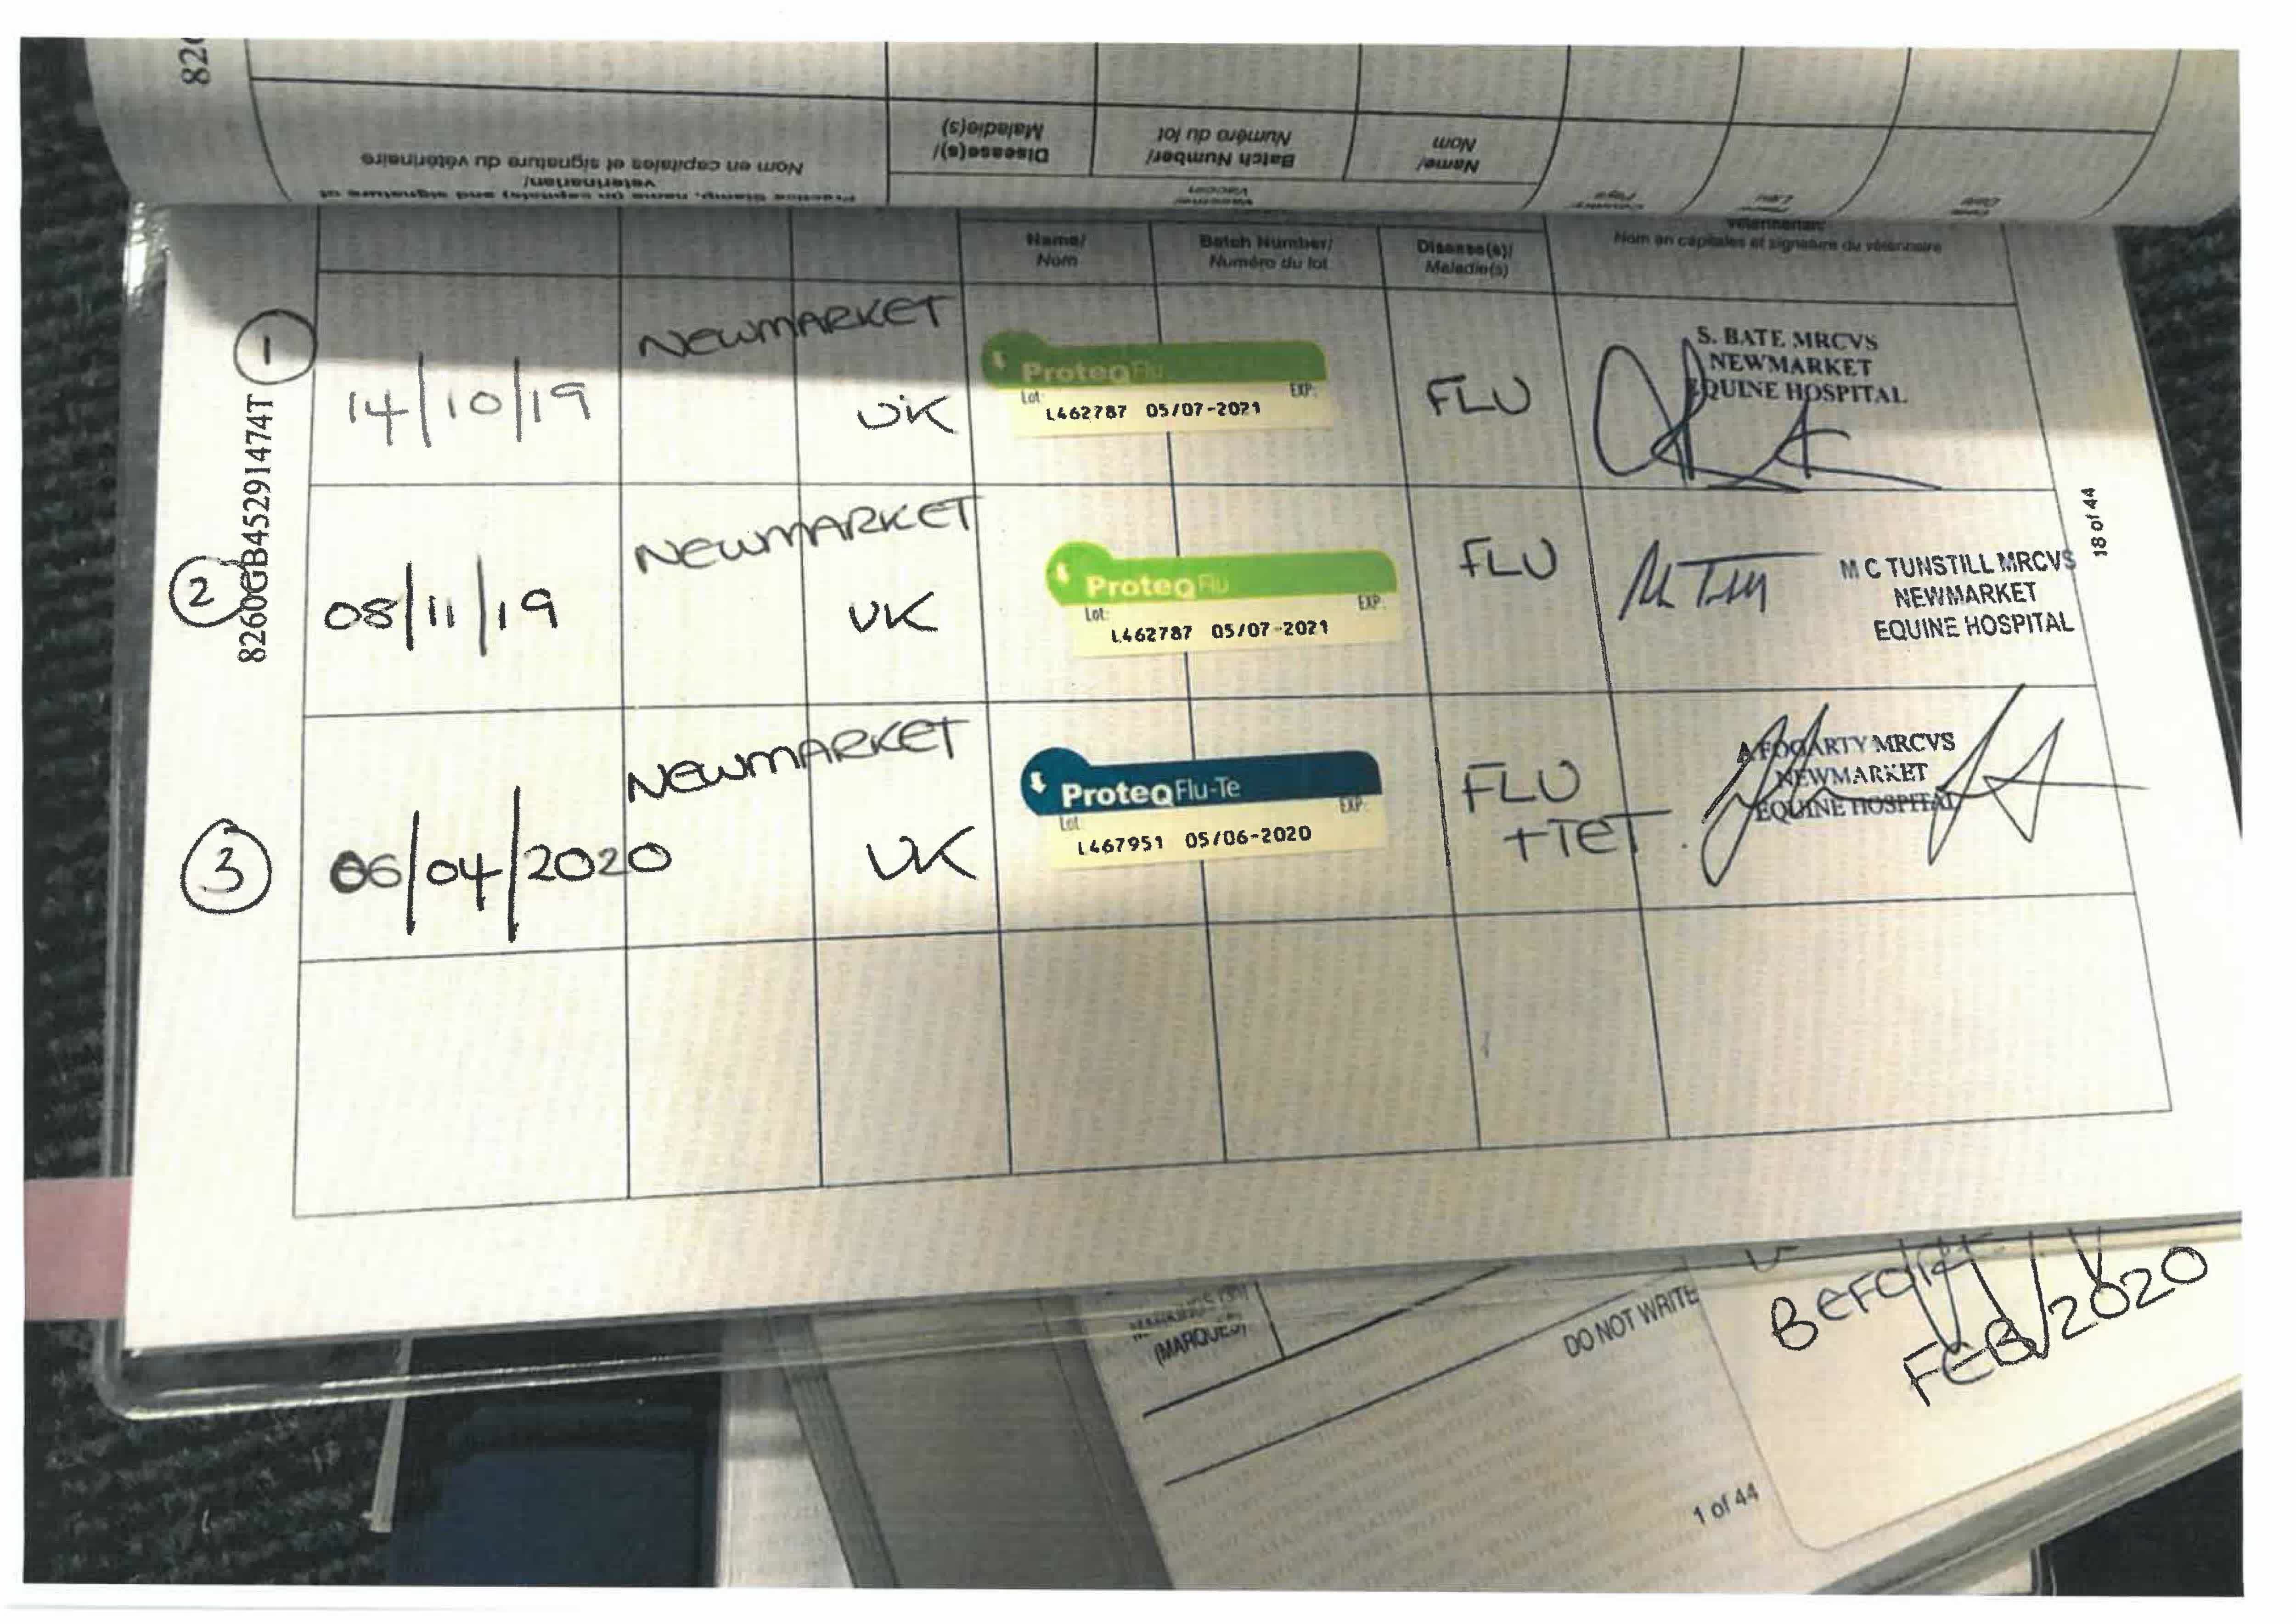 820
Practice Stamp, name (in capitals) and signature of
veterinarian/
Nom en capitales et signature du vétérinaire
Disease(s)/
Maladie(s)
Vaccine/
Vaccin
Batch Number/
Numéro du lot
Name/
Nom
Country
Pays
Lieu
Date
Name/
Nom
Batch Number/
Numéro du lot
Disease(s)/
Maladie(s)
veterinarian/
Nom en capitales et signature du vétérinaire
8260GB452914741T
1
14/10/19
NEWMARKET
UK
ProteqFlu
Lot: EXP:
L462787 05/07-2021
FLU
S. BATE MRCVS
NEWMARKET
EQUINE HOSPITAL
2
08/11/19
NEWMARKET
UK
ProteqFlu
Lot: EXP:
L462787 05/07-2021
FLU
M C TUNSTILL MRCVS
NEWMARKET
EQUINE HOSPITAL
3
06/04/2020
NEWMARKET
UK
ProteqFlu-Te
Lot EXP:
L467951 05/06-2020
FLU
+TET.
A FOGARTY MRCVS
NEWMARKET
EQUINE HOSPITAL
18 of 44
(MARQUES)
DO NOT WRITE
FEB/2020
1 of 44